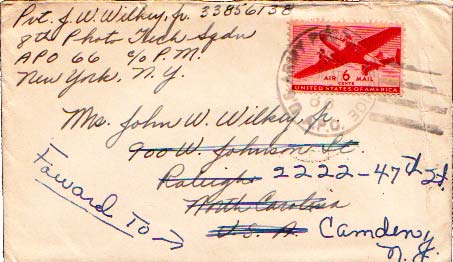 Pvt. J. W. Wilkey, Jr. 33856138
8th Photo Tech Sqdn
APO 66 c/o P.M.
New York, N.Y.
AIR 6 MAIL
CENTS
UNITED STATES OF AMERICA
A.P.O.
Ms. John W. Wilkey, Jr
900 W. Johnson St
Raleigh 2222-47th St.
North Carolina
U.S.A. Camden,
N.J.
Foward To